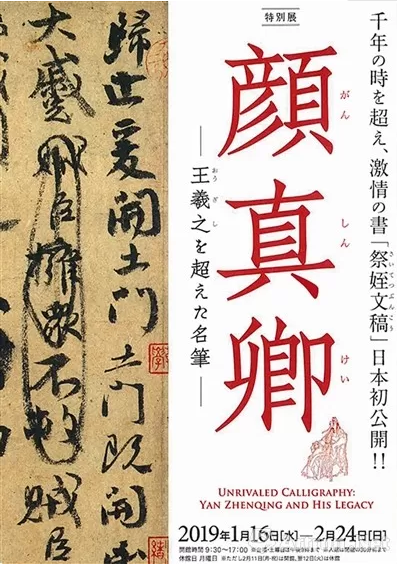 特別展
千年の時を超え、激情の書「祭姪文稿」日本初公開!!
さいてつぶんこう
顔真卿
がん しん けい
―王羲之を超えた名筆―
おう ぎ し
歸止爰開土門土門既開
大蹙賊臣擁衆不救賊臣
UNRIVALED CALLIGRAPHY:
YAN ZHENQING AND HIS LEGACY
2019年1月16日[水]―2月24日[日]
開館時間 9:30〜17:00
休館日 月曜日 ※ただし2月11日(月・祝)は開館、翌12日(火)は休館